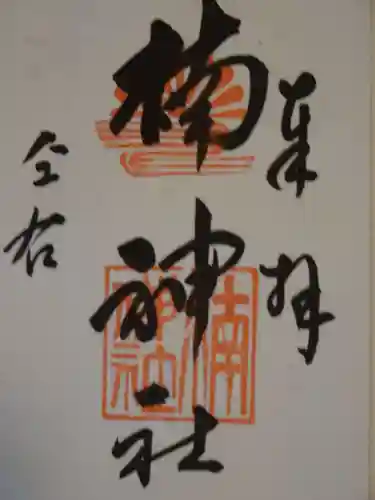 奉拝
楠神社
楠神社
仝右